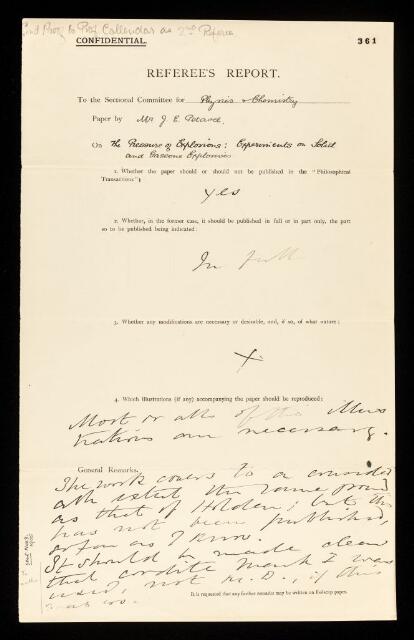 Prof. Callendar as 2nd Referee
CONFIDENTIAL.
361
REFEREE'S REPORT.
To the Sectional Committee for Physics & Chemistry
Paper by Mr J. E. Petavel
On The Pressure of Explosions: Experiments on Solid
and Gaseous Explosives
1. Whether the paper should or should not be published in the "Philosophical
Transactions":
Yes
2. Whether, in the former case, it should be published in full or in part only, the part
so to be published being indicated:
In full
3. Whether any modifications are necessary or desirable, and, if so, of what nature:
X
4. Which illustrations (if any) accompanying the paper should be reproduced:
Most or all of the illus
trations are necessary.
General Remarks.
The work covers to a consider
able extent the same ground
as that of Holden; but this
has not been published,
as far as I know.
It should be made clear
that cordite Mark I was
used, not M.D., if this
was so.
It is requested that any further remarks may be written on foolscap paper.